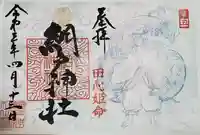 奉拝
田心姫命
網戸神社
令和三年四月十三日